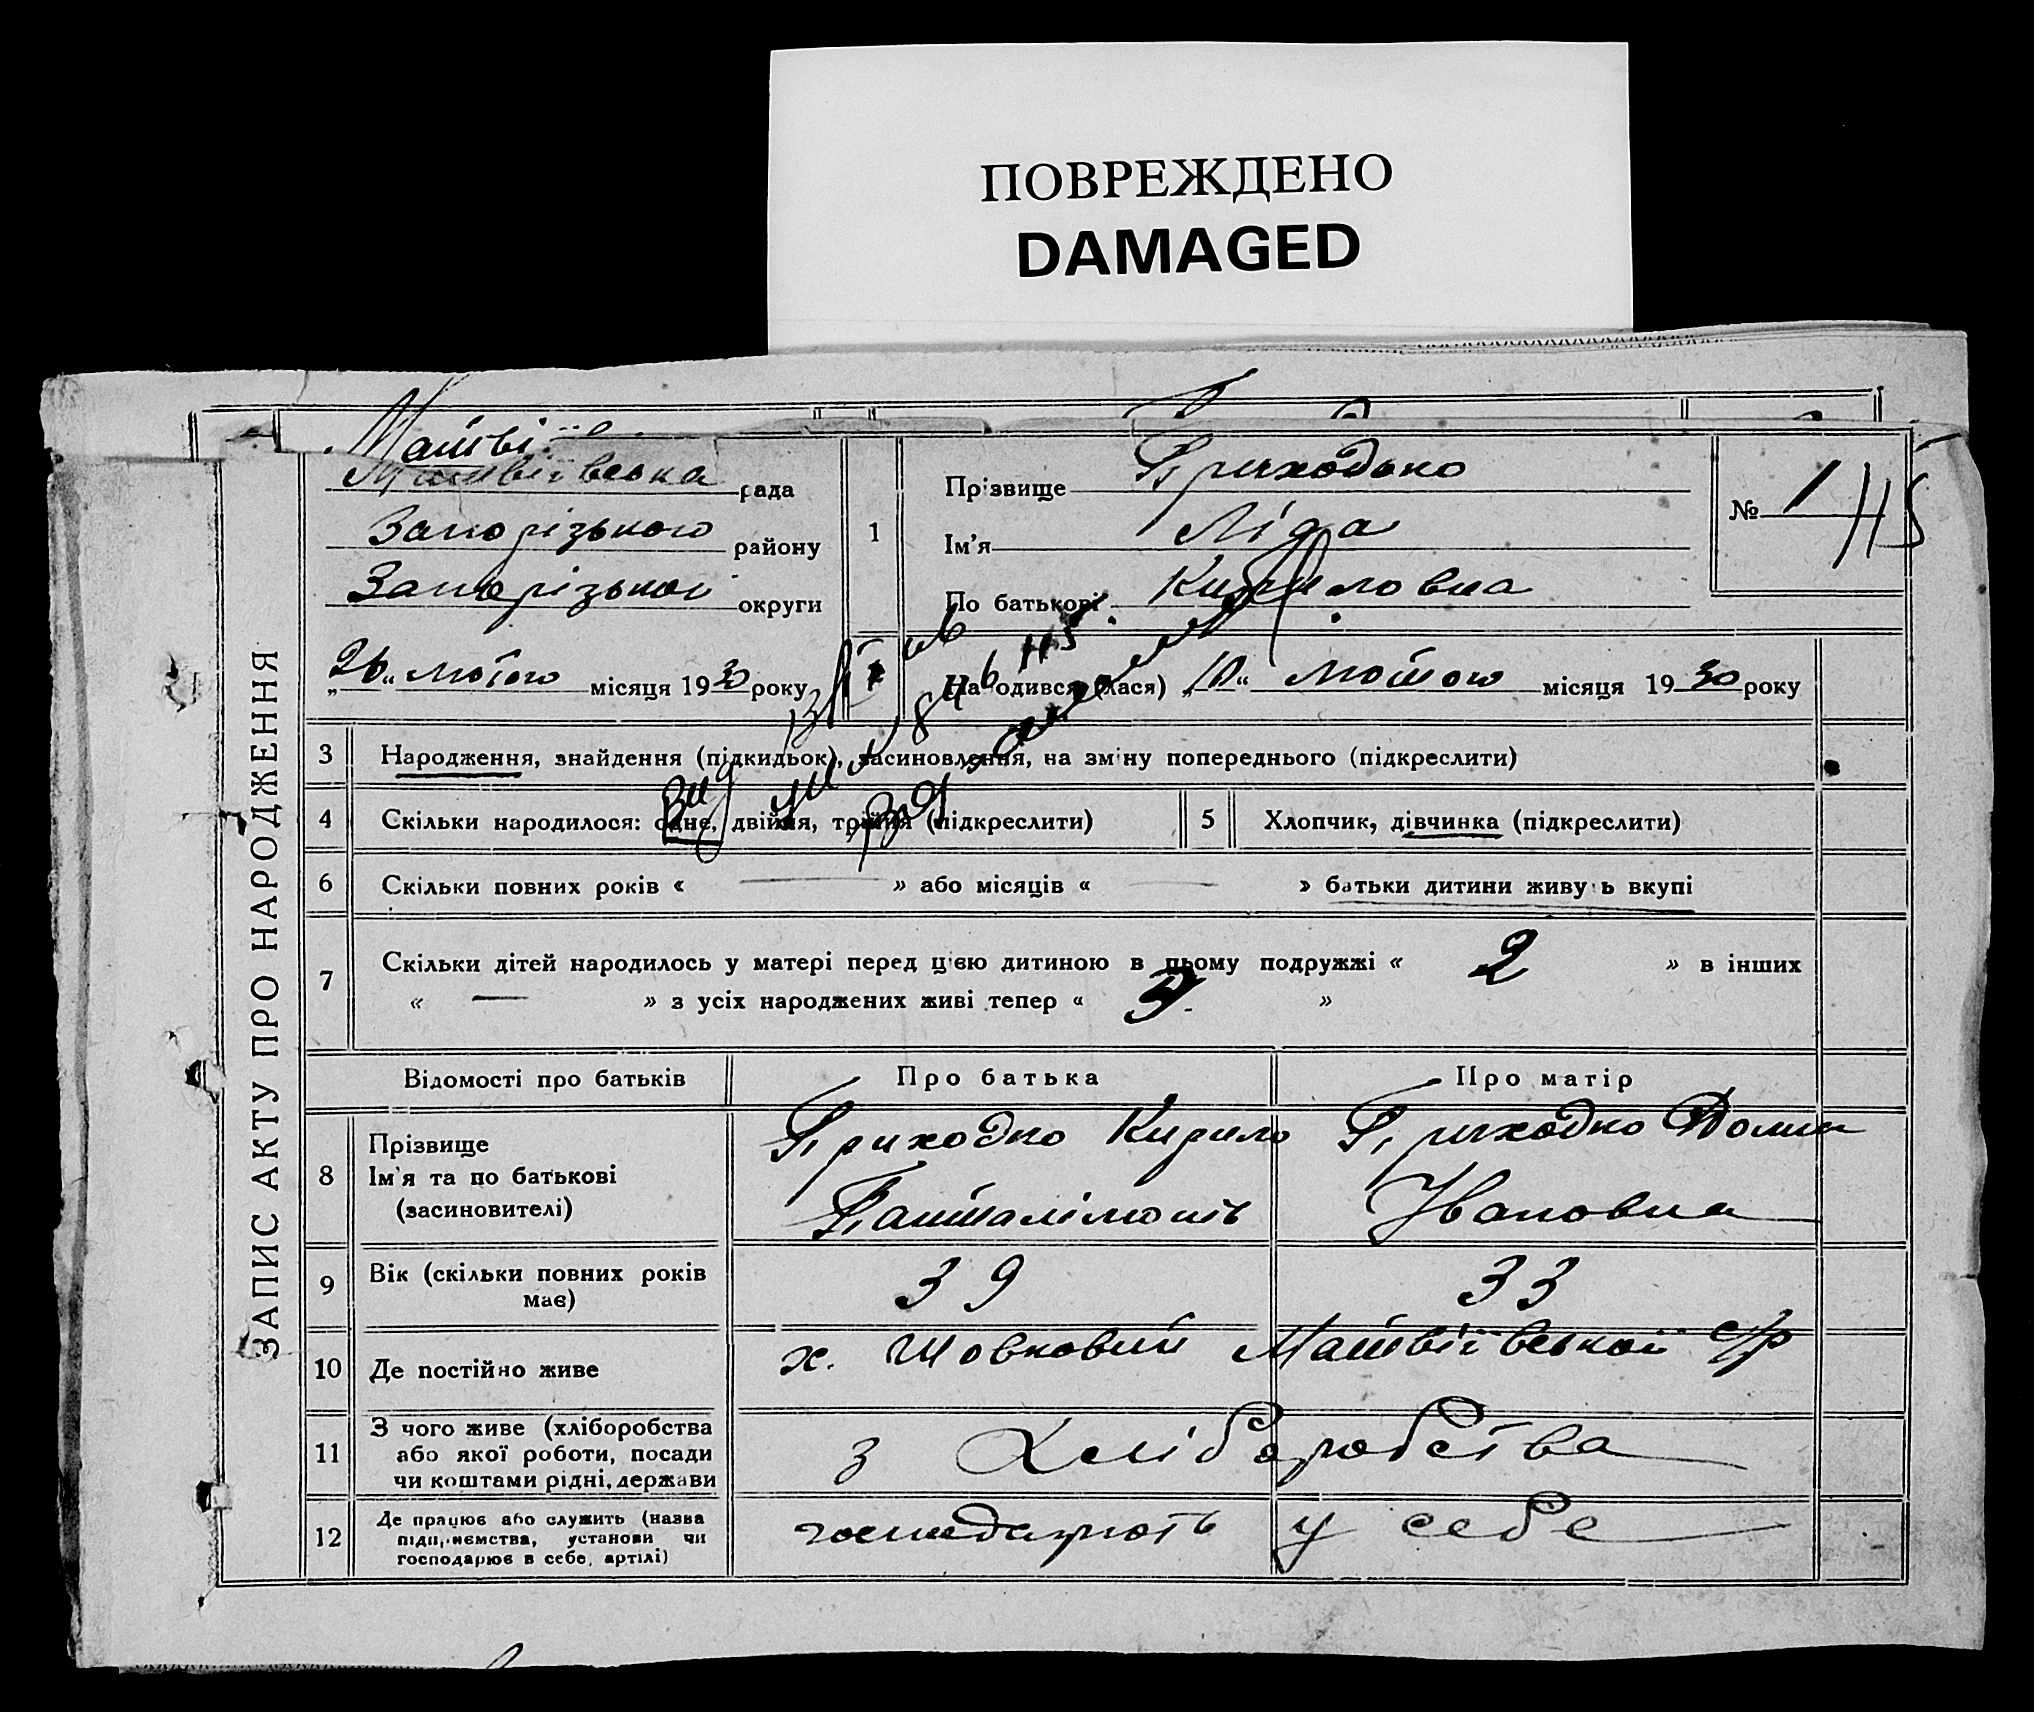 ПОВРЕЖДЕНО
DAMAGED
ЗАПИС АКТУ ПРО НАРОДЖЕННЯ
Матвії
Матвіївська рада
Запорізького району
Запорізької округи
„26“ лютого місяця 1930 року
1
Прізвище Приходько
Ім'я Ліда
По батькові Кириловна
№ 1
115
Народився (лася) „10“ лютого місяця 1930 року
115
3 Народження, знайдення (підкидьок), засиновлення, на зміну попереднього (підкреслити)
4 Скільки народилося: одне, двійня, трійня (підкреслити)
5 Хлопчик, дівчинка (підкреслити)
6 Скільки повних років « — » або місяців « — » батьки дитини живуть вкупі
7 Скільки дітей народилось у матері перед цією дитиною в цьому подружжі « 2 » в інших
« — » з усіх народжених живі тепер « 3 »
Відомості про батьків Про батька Про матір
8 Прізвище
Ім'я та по батькові
(засиновителі)
Приходко Кирило
Панталімонів
Приходко Домна
Івановна
9 Вік (скільки повних років
має)
39 33
10 Де постійно живе х. Шовковий Матвіївської с/р
11 З чого живе (хліборобства
або якої роботи, посади
чи коштами рідні, держави
з хліборобства
12 Де працює або служить (назва
підприємства, установи чи
господарює в себе, артілі)
господарюють у себе